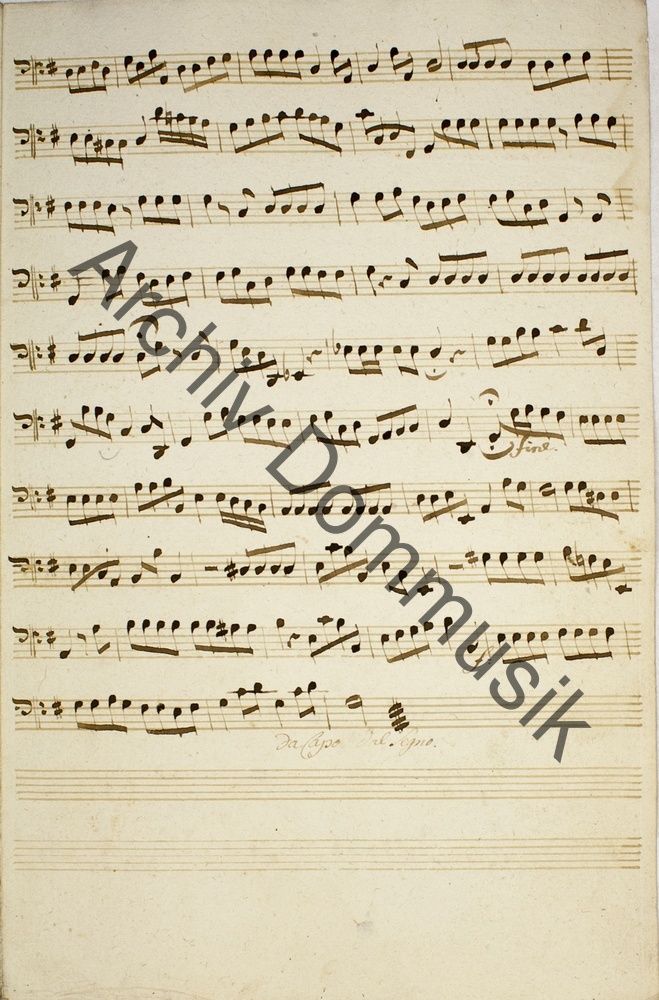 fine.
Da Capo Dal Segno.
Archiv Dommusik